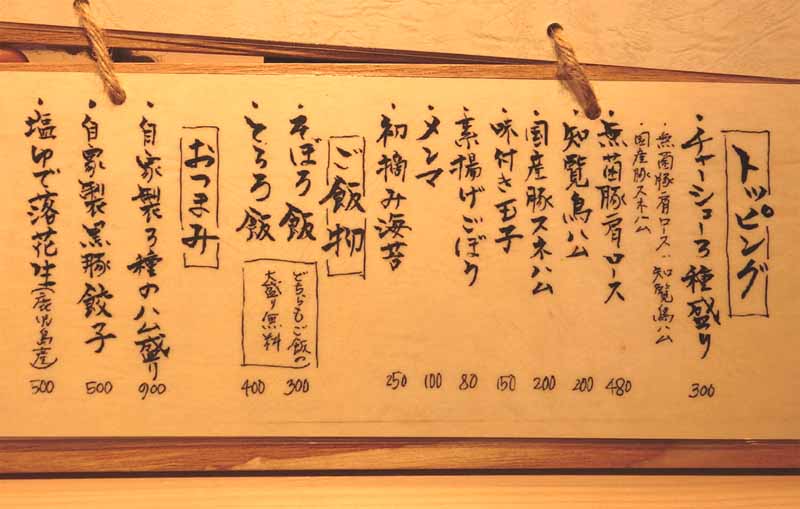 トッピング
・チャーシュー3種盛り 300
・無菌豚肩ロース・知覧鳥ハム
・国産豚スネハム
・無菌豚肩ロース 480
・知覧鳥ハム 200
・国産豚スネハム 200
・味付き玉子 150
・素揚げごぼう 80
・メンマ 100
・初摘み海苔 250
ご飯物
・そぼろ飯 300
・とろろ飯 400
どちらもご飯の
大盛り無料
おつまみ
・自家製3種のハム盛り 900
・自家製黒豚餃子 500
・塩ゆで落花生(鹿児島産) 500